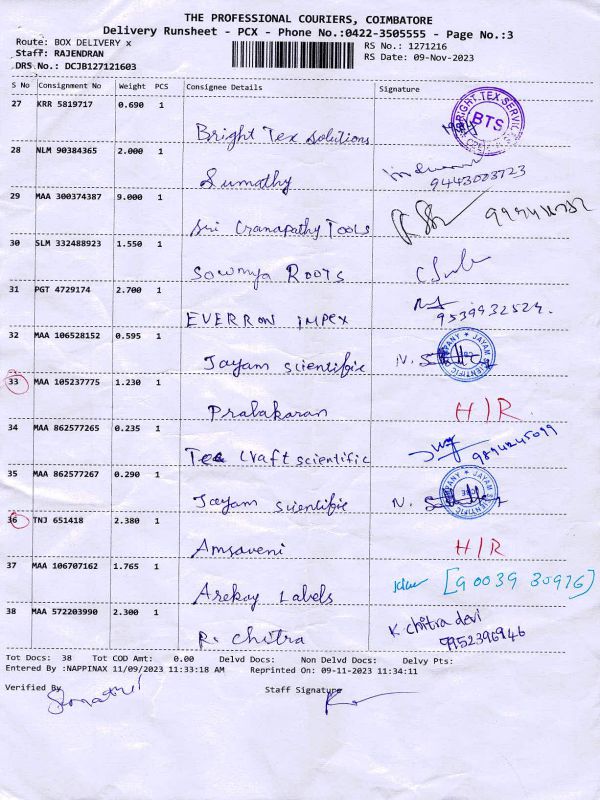 THE PROFESSIONAL COURIERS, COIMBATORE
Delivery Runsheet - PCX - Phone No.:0422-3505555 - Page No.:3
Route: BOX DELIVERY x
RS No.: 1271216
Staff: RAJENDRAN
RS Date: 09-Nov-2023
DRS No.: DCJB127121603
S No Consignment No Weight PCS Consignee Details Signature
27 KRR 5819717 0.690 1
Bright Tex Solutions
BRIGHT TEX SERVICES BTS
28 NLM 90384365 2.000 1
Sumathy
9443003723
29 MAA 300374387 9.000 1
Sri Ganapathy Tools
30 SLM 332488923 1.550 1
Sowmya Roots
31 PGT 4729174 2.700 1
EVERRON IMPEX
9539932524.
32 MAA 106528152 0.595 1
Jayam scientific
JAYAM SCIENTIFIC COMPANY
33 MAA 105237775 1.230 1
Prabakaran
H/R.
34 MAA 862577265 0.235 1
Tec Craft scientific
9894245099
35 MAA 862577267 0.290 1
Jayam scientific
JAYAM SCIENTIFIC COMPANY
36 TNJ 651418 2.380 1
Amsaveni
H/R
37 MAA 106707162 1.765 1
Arekay Labels
[90039 30976]
38 MAA 572203990 2.300 1
R. chitra
K chitra devi
9952396946
Tot Docs: 38 Tot COD Amt: 0.00 Delvd Docs: Non Delvd Docs: Delvy Pts:
Entered By :NAPPINAX 11/09/2023 11:33:18 AM Reprinted On : 09-11-2023 11:34:11
Verified By
Staff Signature